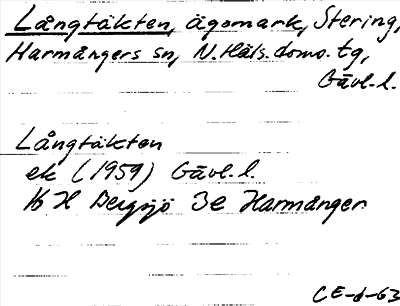 Långtäkten, ägomark, Stering,
Harmångers sn, N. Häls. doms. tg,
Gävl. l.
Långtäkten
ek (1959) Gävl. l.
16 H Bergsjö 3e Harmånger
CE-d-63